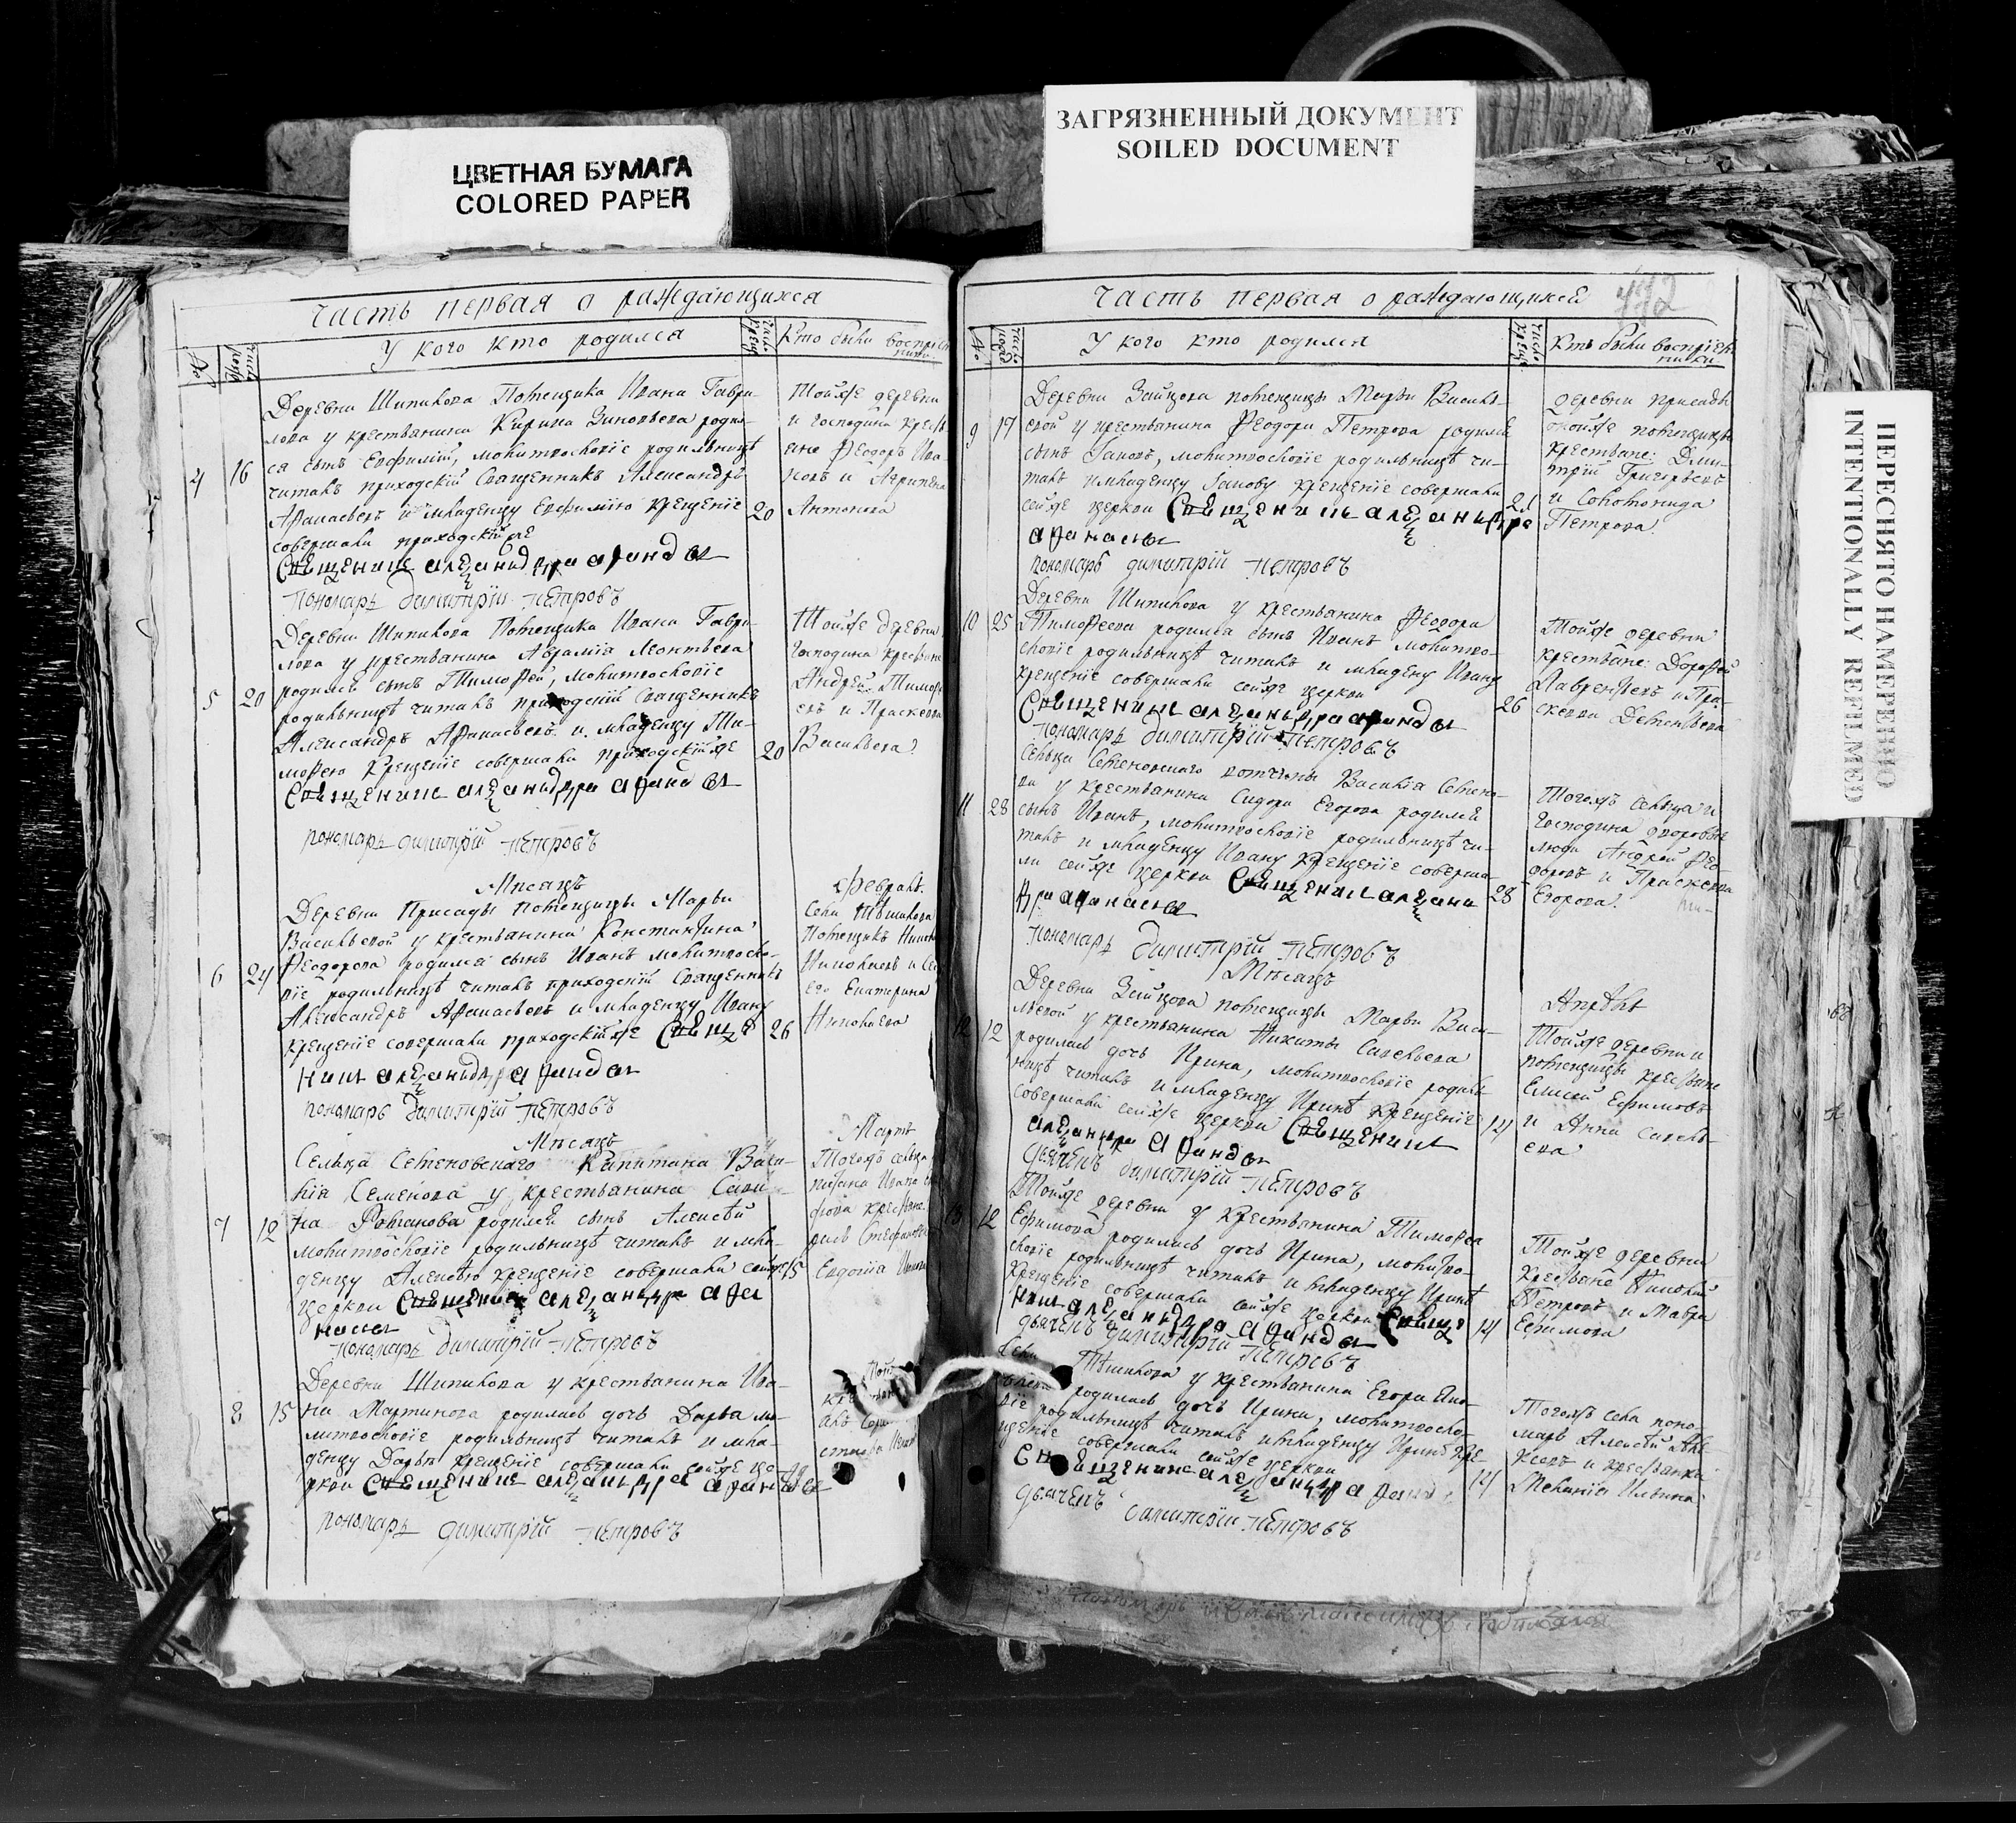 ЦВЕТНАЯ БУМАГА
COLORED PAPER
ЗАГРЯЗНЕННЫЙ ДОКУМЕНТ
SOILED DOCUMENT
ПЕРЕСНЯТО НАМЕРЕННО
INTENTIONALLY REFILMED
Часть первая о раждающихся
У кого кто родился
Кто были восприем
ники
Деревни Шипилова Помещика Ивана Гаври-
лова у крестьянина Кирила Зиновьева родил-
ся сынъ Евфимій, молитвословіе родильницѣ
4 16 читалъ приходскій Священникъ Александръ
Афанасьевъ и младенцу Евфимію крещеніе 20
совершали приходскій же
Священникъ александра афанасы
Пономарь димитрій петровъ
Той же деревни
и господина кресть
яне Феодоръ Ива
новъ и Агрипена
Антонова
Деревни Шипилова Помещика Ивана Гаври-
лова у крестьянина Авраміа Леонтьева
родился сынъ Тимофей, молитвословіе
5 20 родильницѣ читалъ приходскій Священникъ
Александръ Афанасьевъ и младенцу Ти-
мофею крещеніе совершали приходскій же 20
Священникъ александра афанасы
пономарь димитрій петровъ
Той же деревни
господина крестьяне
Андрей Тимофе
евъ и Праскева
Васильева
Мѣсяцъ Февраль
Деревни Присады помещицы Марьи
Васильевой у крестьянина Константина
Феодорова родился сынъ Иванъ молитвосло-
6 24 віе родильницѣ читалъ приходскій Священникъ
Александръ Афанасьевъ и младенцу Ивану
крещеніе совершали приходскій же Свяще 26
никъ александра афанасы
пономарь димитрій петровъ
Села Тѣшилова
Помещикъ Никола
Николаевъ и
его Екатерина
Николаева
Мѣсяцъ Мартъ
Сельца Семеновскаго Капитана Васи-
лія Семенова у крестьянина Сави-
7 12 на Романова родился сынъ Алексѣй
молитвословіе родильницѣ читалъ и мла-
денцу Алексѣю крещеніе совершали сей же 15
церкви Священникъ александра афа
насы
пономарь димитрій петровъ
Тогожъ сельца
Евдокіа
Деревни Шипилова у крестьянина Ива-
8 15 на Мартинова родилась дочь Дарья мо-
литвословіе родильницѣ читалъ и мла-
денцу Дарьи крещеніе совершали сей же це-
ркви Священникъ александра афанасы
пономарь димитрій петровъ
Часть первая о раждающихся
У кого кто родился
Кто были восприем
ники
Деревни Зайцова помещицы Марьи Василь-
9 17 евой у крестьянина Феодора Петрова родился
сынъ Іаковъ, молитвословіе родильницѣ чи-
талъ и младенцу Іакову крещеніе совершали
сей же церкви Священникъ александра 21
афанасы
пономарь димитрій петровъ
деревни присады
оной же помещицы
крестьяне: Дми-
трій Григорьевъ
и Соломонида
Петрова
Деревни Шипилова у крестьянина Феодора
10 25 Тимофеева родился сынъ Иванъ молитво-
словіе родильницѣ читалъ и младенцу Ивану
крещеніе совершали сей же церкви
Священникъ александра афанасы 26
пономарь димитрій петровъ
Той же деревни
крестьяне: Дорофей
Лаврентьевъ и Пра-
скева Дементьева
Сельца Семеновскаго вотчины Василія Семено-
ва у крестьянина Сидора Егорова родился
11 28 сынъ Иванъ, молитвословіе родильницѣ чи-
талъ и младенцу Ивану крещеніе соверша-
ли сей же церкви Священникъ алексан 28
дра афанасы
пономарь димитрій петровъ
Тогожъ сельца и
господина дворовые
люди Андрей Фео
доровъ и Праскева
Егорова
Мѣсяцъ Апрѣль
Деревни Зайцова помещицы Марьи Васи-
льевой у крестьянина Никиты Савельева
12 12 родилась дочь Ирина, молитвословіе родиль-
ницѣ читалъ и младенцу Иринѣ крещеніе
совершали сей же церкви Священникъ 14
александра афанасы
дьячекъ димитрій петровъ
Той же деревни и
помещицы крестьяне
Елисей Ефимовъ
и Анна Савель-
ева
Той же деревни у крестьянина Тимофея
13 12 Ефимова родилась дочь Ирина, молитво-
словіе родильницѣ читалъ и младенцу Иринѣ
крещеніе совершали сей же церкви Свяще
никъ александра афанасы 14
дьячекъ димитрій петровъ
Той же деревни
крестьяне Николай
Петровъ и Мавра
Ефимова
Села Тѣшилова у крестьянина Егора
родилась дочь Ирина, молитвосло-
віе родильницѣ читалъ и младенцу Иринѣ кре-
щеніе совершали сей же церкви
Священникъ александра афанасы 14
дьячекъ димитрій петровъ
Тогожъ села поно-
марь Алексѣй Але
ксеевъ и крестьянка
Меланія Ильина